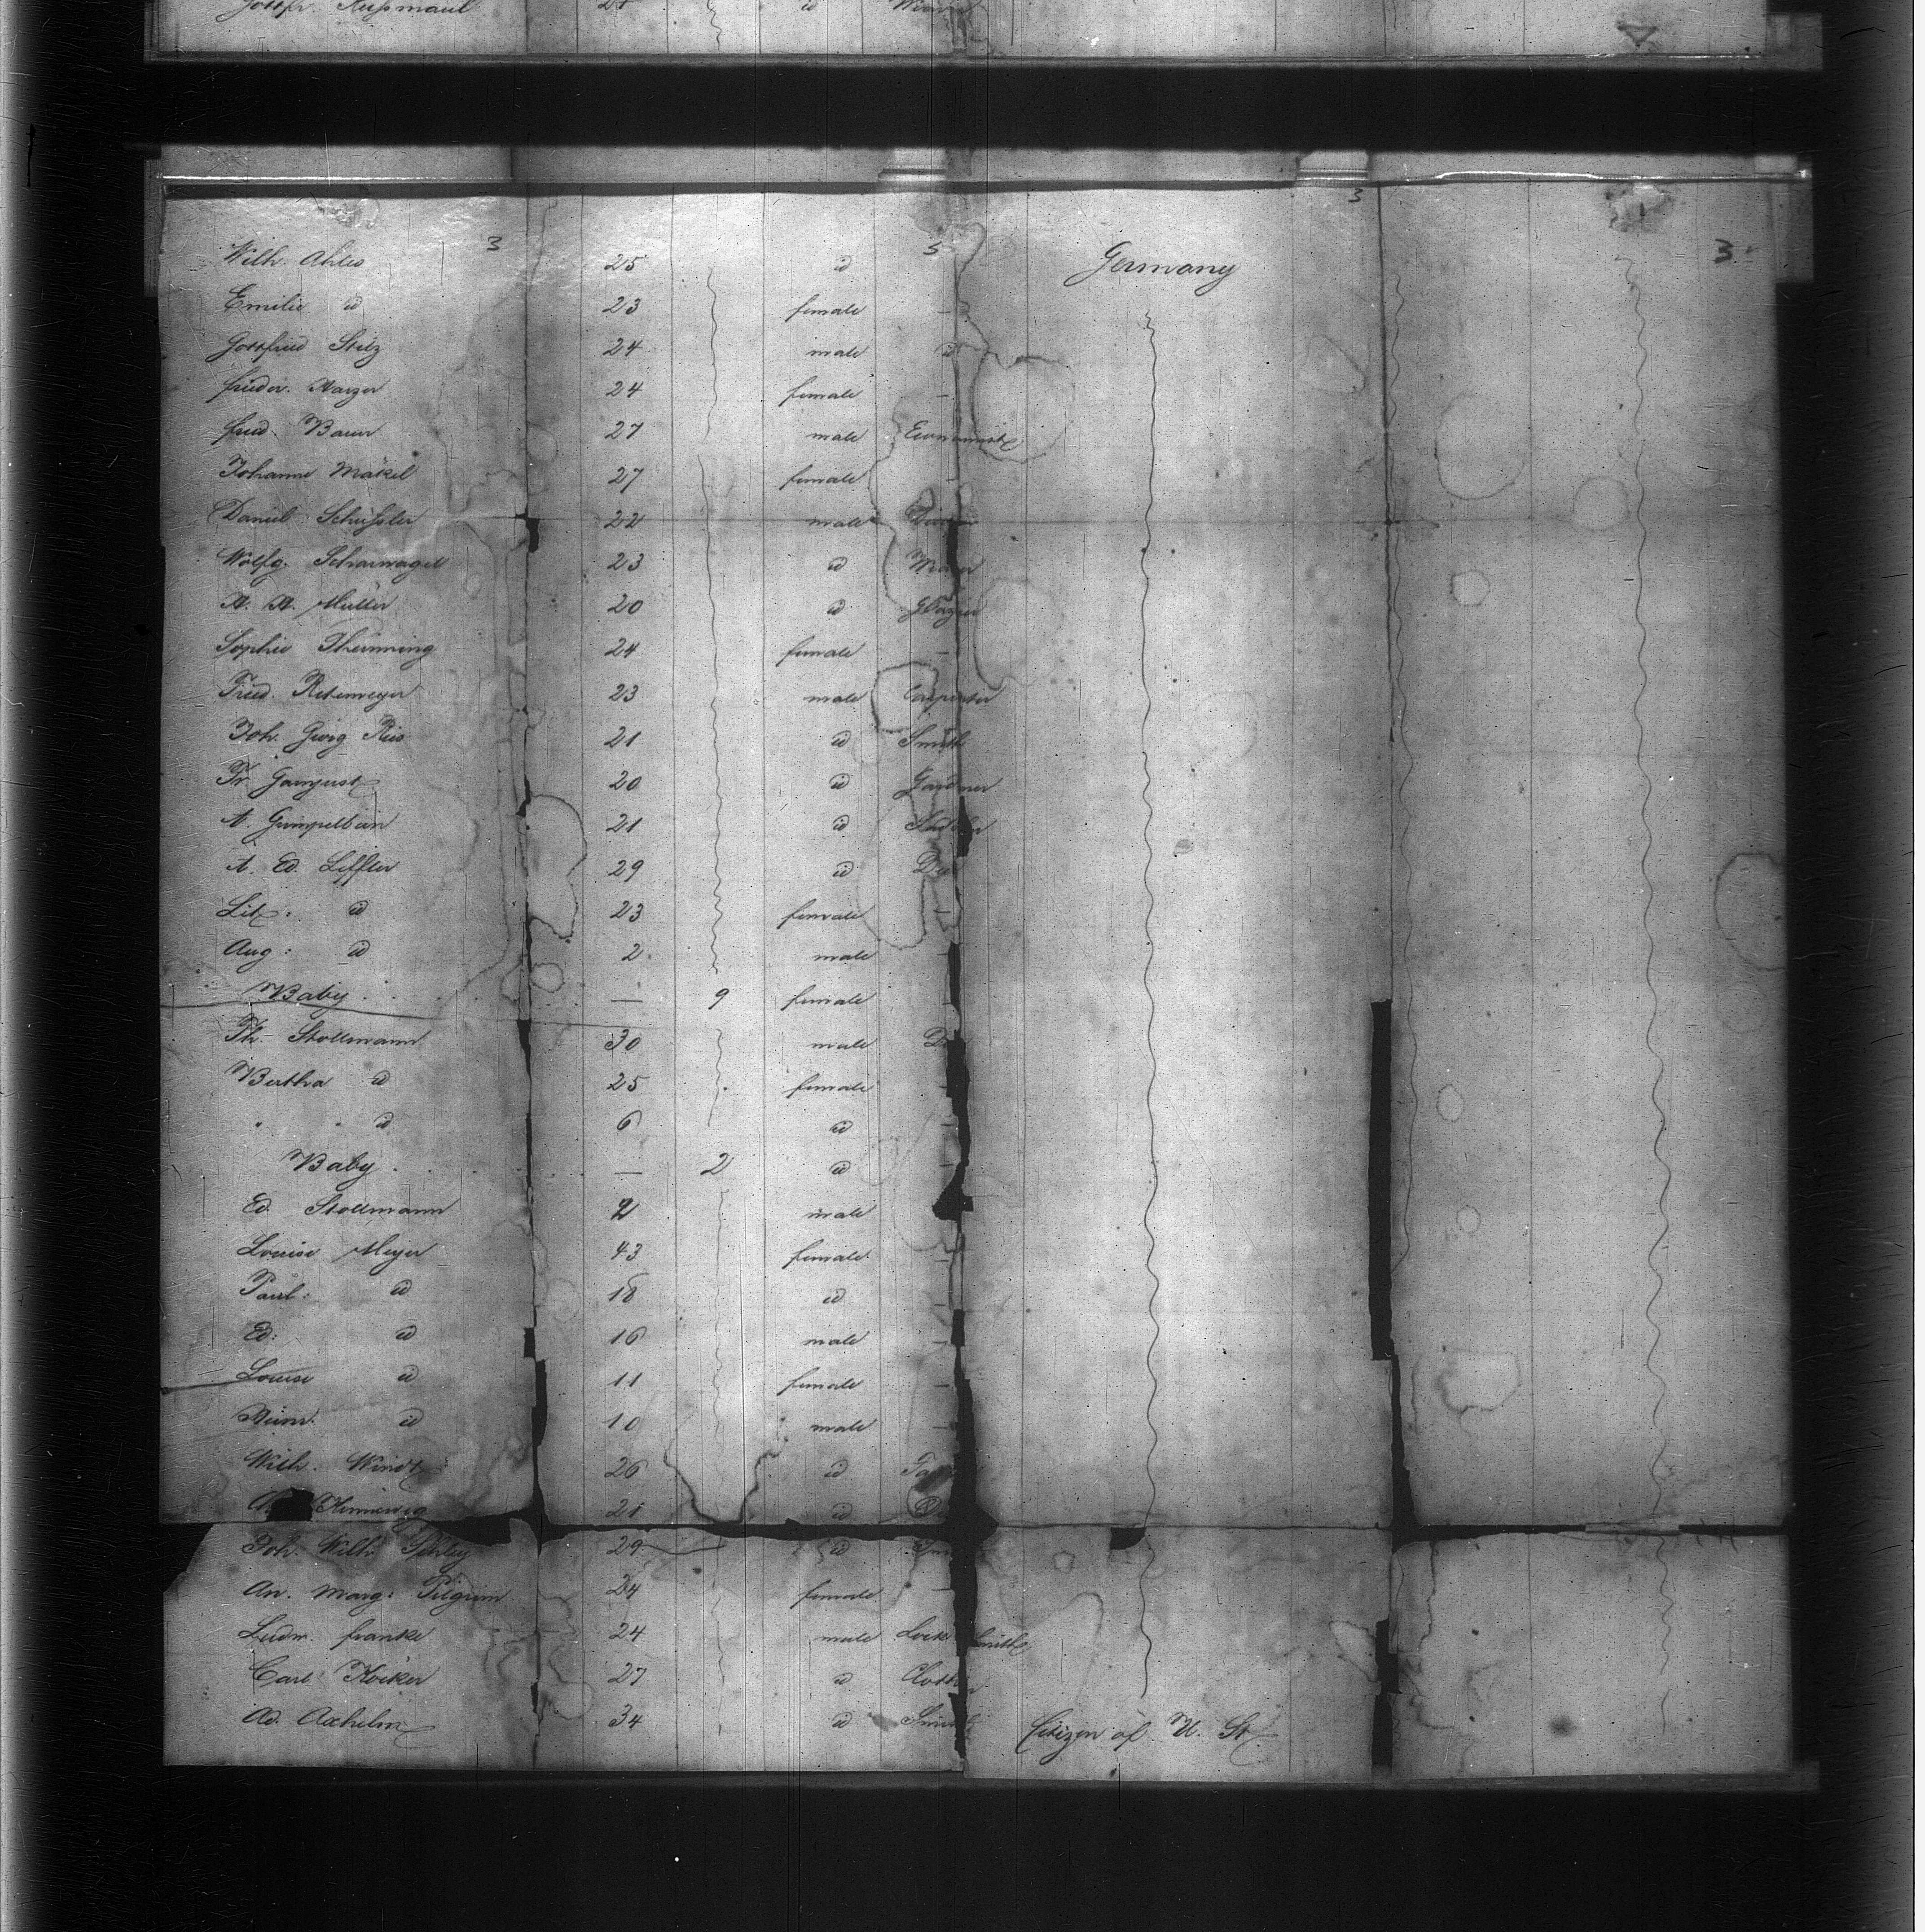 Gottfr. Kußmaul 21 id
3 5 3 3
Wilh. Ahles 25 id Germany
Emilie id 23 female –
Gottfried Stilz 24 male id
frieder. 24 female –
fried. Bauer 27 male Economist
Johanne Mäkel 27 female –
Daniel Schüssler 22 male
Wolfg. Scharnagel 23 id
A. A. Müller 20 id Glazier
Sophie Thenning 24 female –
Fried. Retemeyer 23 male Carpenter
Joh. Georg Ries 21 id Smith
Fr. 20 id Gardner
A. Gumpelbein 21 id
A. Ed. Leffler 29 id
Lit: id 23 female –
Aug: id 2 male –
Baby – 9 female –
Th. Stollmann 30 male
Bertha id 25 female –
" " id 6 id –
Baby – 2 id –
Ed. Stollmann 2 male
Louise Meyer 43 female –
Paul: id 18 id –
Ed: id 16 male –
Louise id 11 female –
Heinr: id 10 male –
Wilh. Windt 26 id
21 id
Joh. Wilh. 29 id
An. Marg: Pilgrim 24 female –
Ludw. franke 24 male Locksmith
Carl Köcker 27 id
Ad. Axhelm 34 id Smith Citizen of U. St.